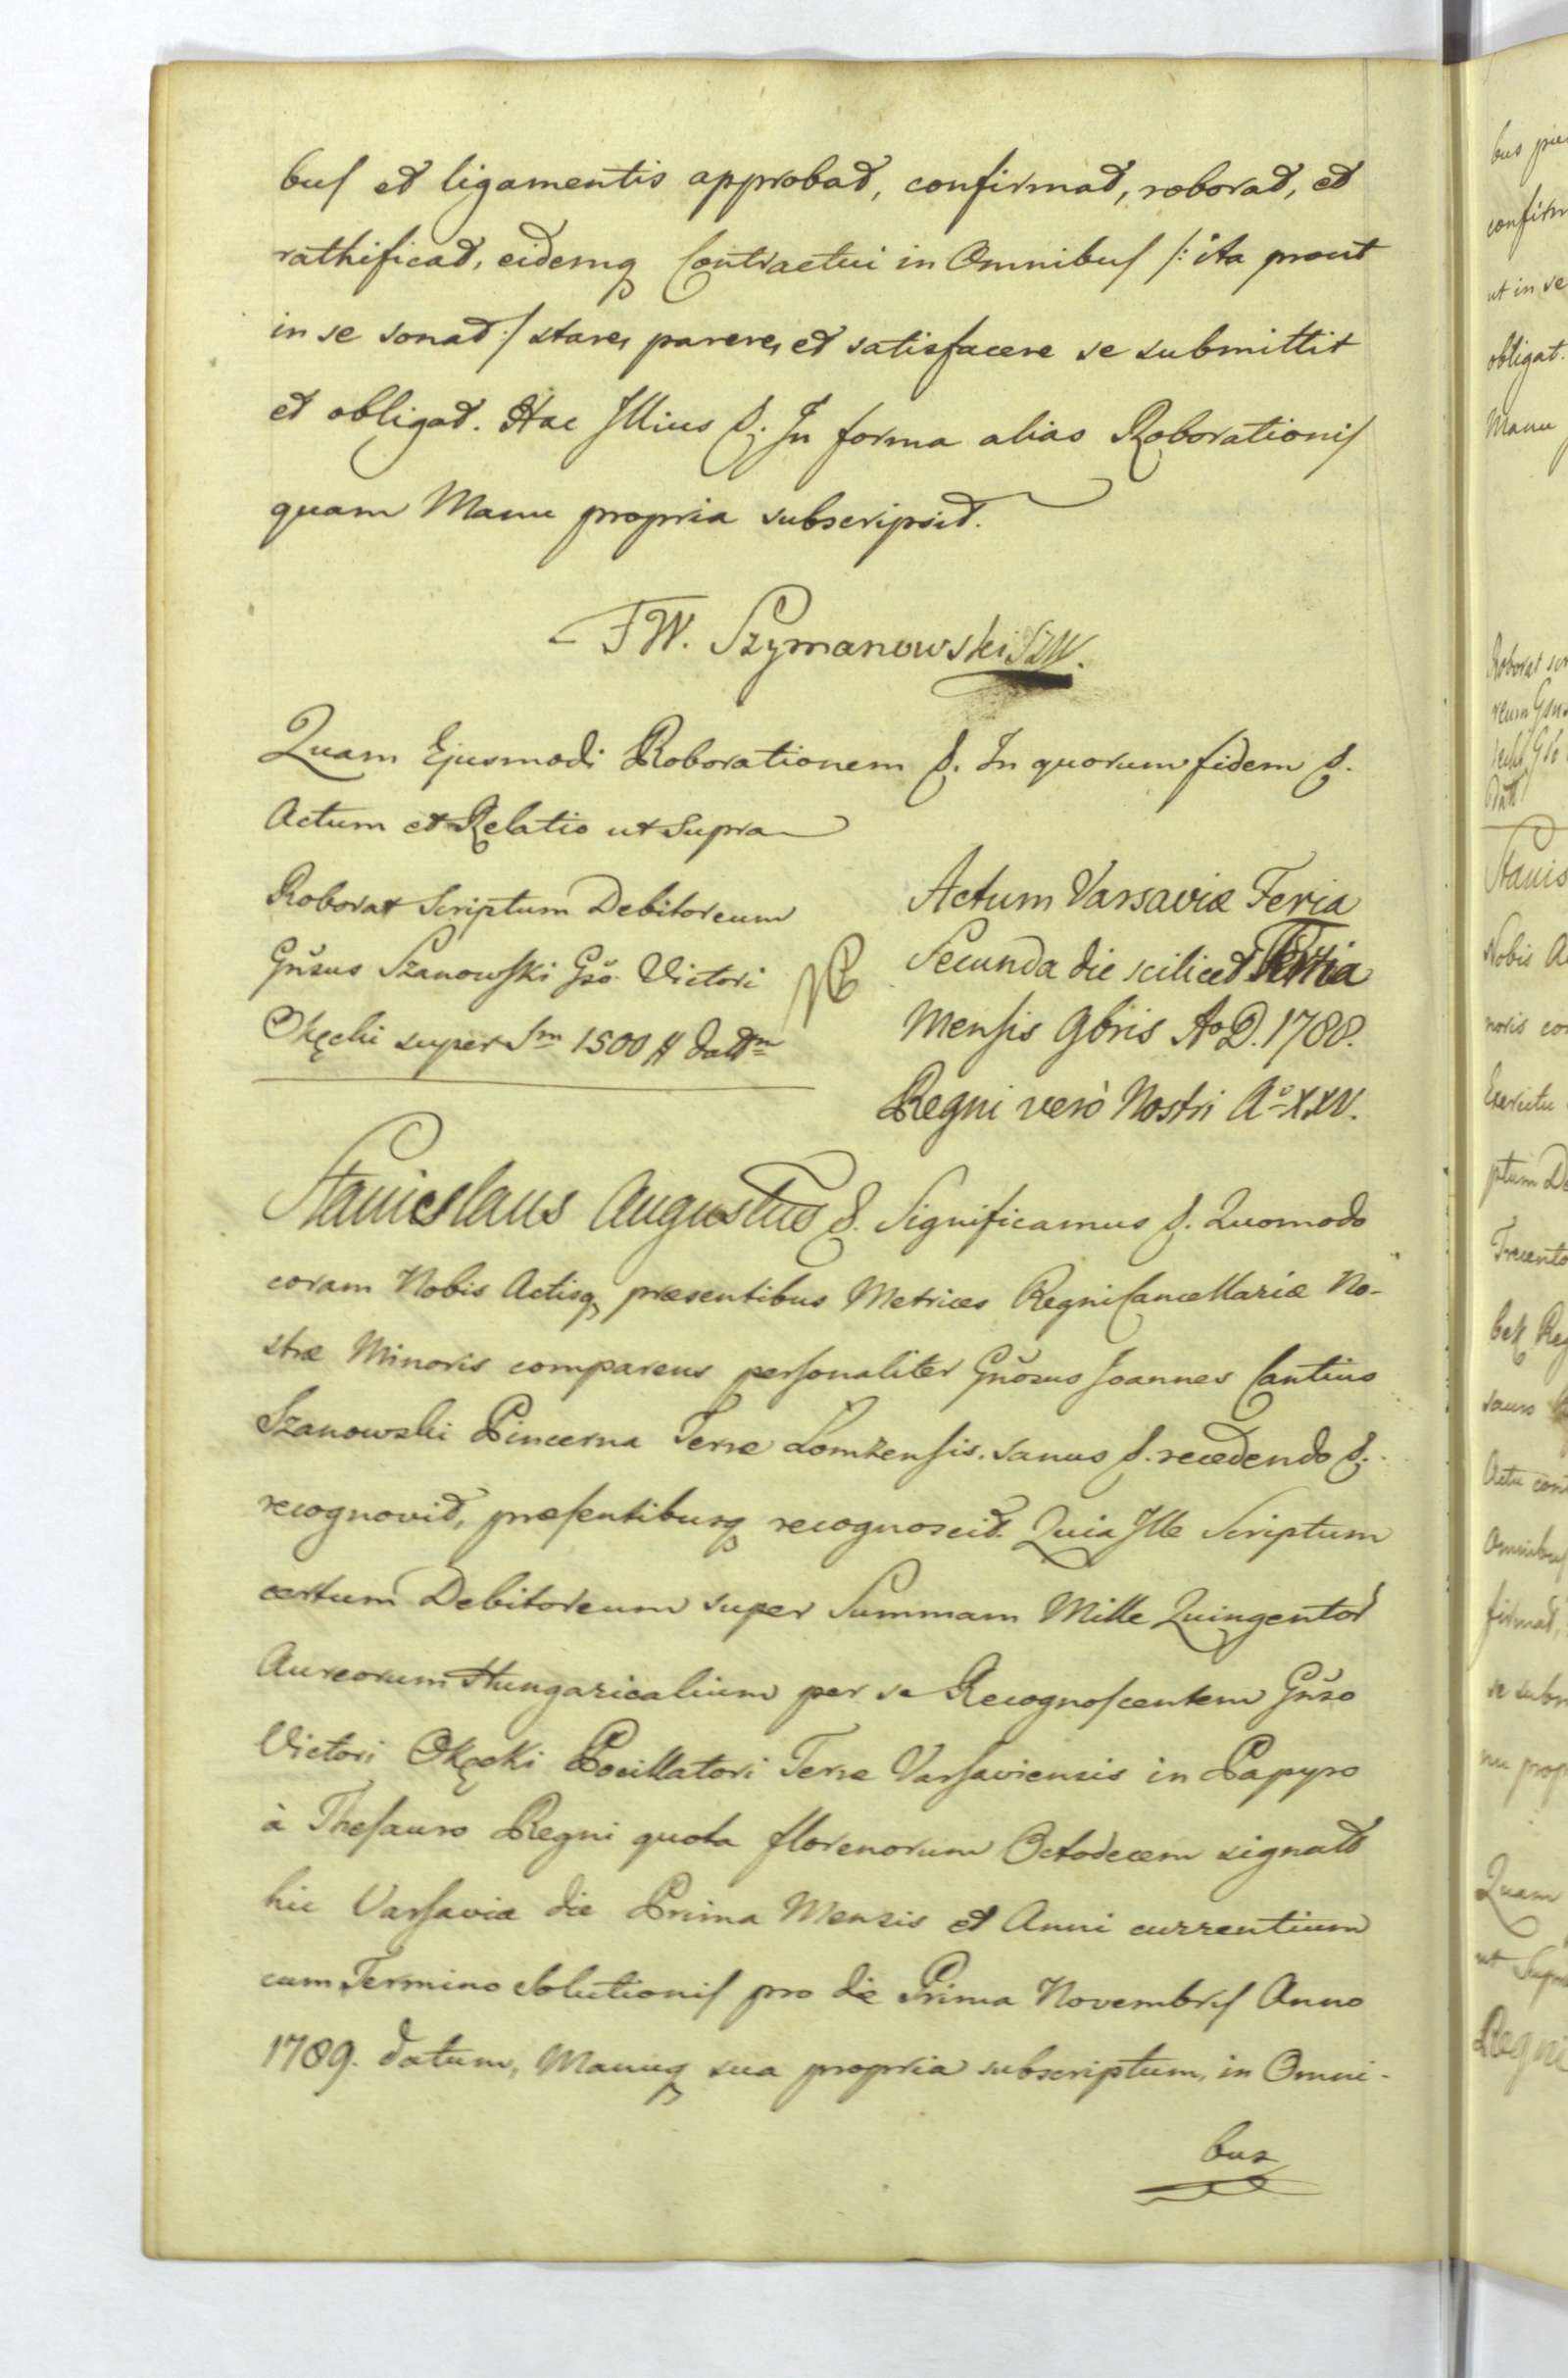 bus et ligamentis approbat, confirmat, roborat, et
rathificat, eidemq Contractui in Omnibus /: ita prout
in se sonat :/ stare, parere, et satisfacere se submittit
et obligat. Hac Illius &. In forma alias Roborationis
quam Manu propria subscripsit.
FW. Szymanowski SZW.
Quam Ejusmodi Roborationem &. In quorum fidem &.
Actum et Relatio ut Supra
Roborat Scriptum Debitoreum
Gñsus Szanowski Gso Victori
Okęcki super Sm 1500 # datm
Actum Varsaviæ Feria
Secunda die scilicet Tertia
Mensis 9bris Ao D. 1788.
Regni verò Nostri Ao XXV.
Stanislaus Augustus &. Significamus &. Quomodo
coram Nobis Actisq præsentibus Metrices Regni Cancellariæ No-
stræ Minoris comparens personaliter Gñosus Joannes Cantius
Szanowski Pincerna Terræ Lomzensis. sanus &. recedendo &.
recognovit, præsentibusq recognoscit. Quia Ille Scriptum
certum Debitoreum super Summam Mille Quingentor
Aureorum Hungaricalium per se Recognoscentem Gñso
Victori Okęcki Pocillatori Terræ Varsaviensis in Papyro
à Thesauro Regni quota florenorum Octodecem signatt
hic Varsaviæ die Prima Mensis et Anni currentium
cum Termino Solutionis pro die Prima Novembris Anno
1789. datum, Manuq sua propria subscriptum, in Omni-
bus